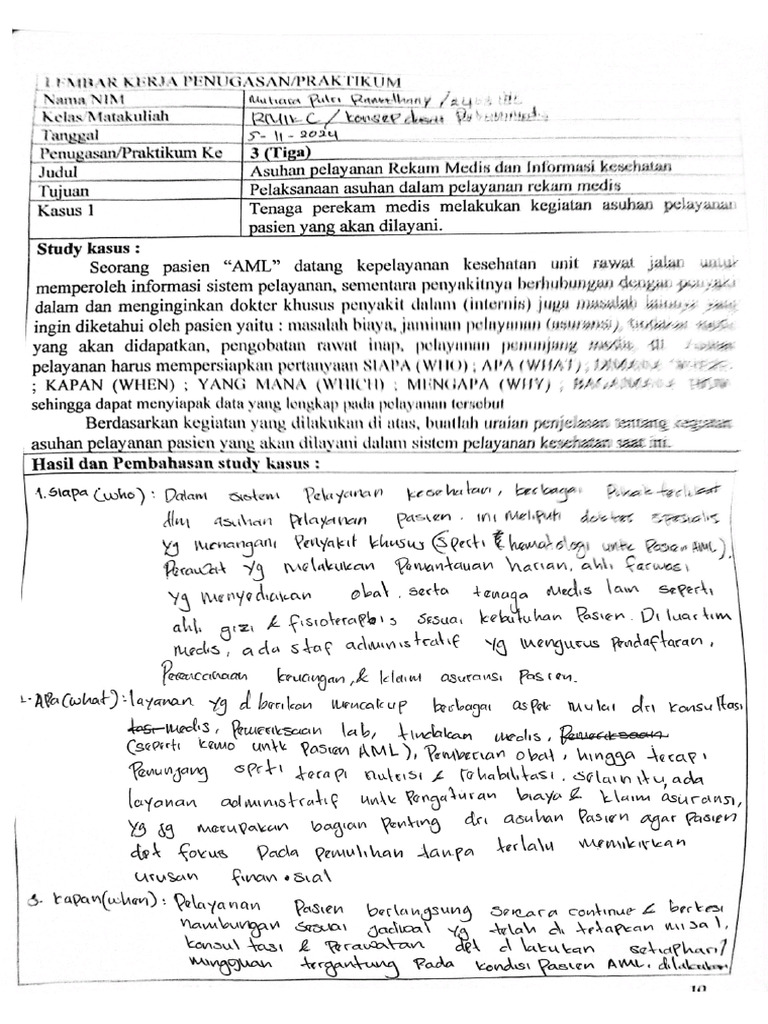 LEMBAR KERJA PENUGASAN/PRAKTIKUM
Nama NIM
Kelas/Matakuliah RMIK C / Konsep dasar
Tanggal 5-11-2024
Penugasan/Praktikum Ke 3 (Tiga)
Judul Asuhan pelayanan Rekam Medis dan Informasi kesehatan
Tujuan Pelaksanaan asuhan dalam pelayanan rekam medis
Kasus 1 Tenaga perekam medis melakukan kegiatan asuhan pelayanan
pasien yang akan dilayani.
Study kasus :
Seorang pasien “AML” datang kepelayanan kesehatan unit rawat jalan untuk
memperoleh informasi sistem pelayanan, sementara penyakitnya berhubungan dengan penyakit
dalam dan menginginkan dokter khusus penyakit dalam (internis) juga masalah lainnya yang
ingin diketahui oleh pasien yaitu : masalah biaya, jaminan pelayanan (asuransi),
yang akan didapatkan, pengobatan rawat inap, pelayanan penunjang medis, di
pelayanan harus mempersiapkan pertanyaan SIAPA (WHO) ; APA (WHAT) ; DIMANA
; KAPAN (WHEN) ; YANG MANA (WHICH) ; MENGAPA (WHY) ; BAGAIMANA HOW
sehingga dapat menyiapak data yang lengkap pada pelayanan tersebut
Berdasarkan kegiatan yang dilakukan di atas, buatlah uraian penjelasan tentang kegiatan
asuhan pelayanan pasien yang akan dilayani dalam sistem pelayanan kesehatan saat ini.
Hasil dan Pembahasan study kasus :
1. Siapa (who) : Dalam sistem Pelayanan kesehatan, berbagai Pihak terlibat
dlm asuhan Pelayanan Pasien. ini meliputi dokter spesialis
yg menangani Penyakit khusus (Sperti hematologi untk Pasien AML).
Perawat yg melakukan Pemantauan harian, ahli farmasi
yg menyediakan obat. serta tenaga medis lain seperti
ahli gizi & fisioterapbis sesuai kebutuhan Pasien. Di luar tim
medis, ada staf administratif yg mengurus Pendaftaran,
Perencanaan keuangan, & klaim asuransi Pasien.
2. Apa (what) : layanan yg d berikan mencakup berbagai aspek mulai dri konsultasi
tasi medis, Pemeriksaan lab, tindakan medis, Pemeriksaan
(seperti kemo untk Pasien AML), Pemberian obat, hingga terapi
Penunjang sprti terapi nutrisi & rehabilitasi. selain itu, ada
layanan administratif untk Pengaturan biaya & klaim asuransi,
yg jg merupakan bagian penting dri asuhan Pasien agar Pasien
dpt fokus Pada pemulihan tanpa terlalu memikirkan
urusan finansial
3. Kapan (when) : Pelayanan Pasien berlangsung secara continue & berkesi
nambungan sesuai jadwal yg telah di tetapkan misal,
konsul tasi & Perawatan dpt d lakukan setiap hari/
mingguan tergantung Pada kondisi Pasien AML. dilakukan